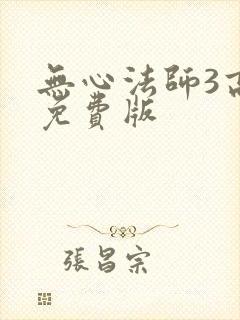 無心法師3高
免費版
張昌宗